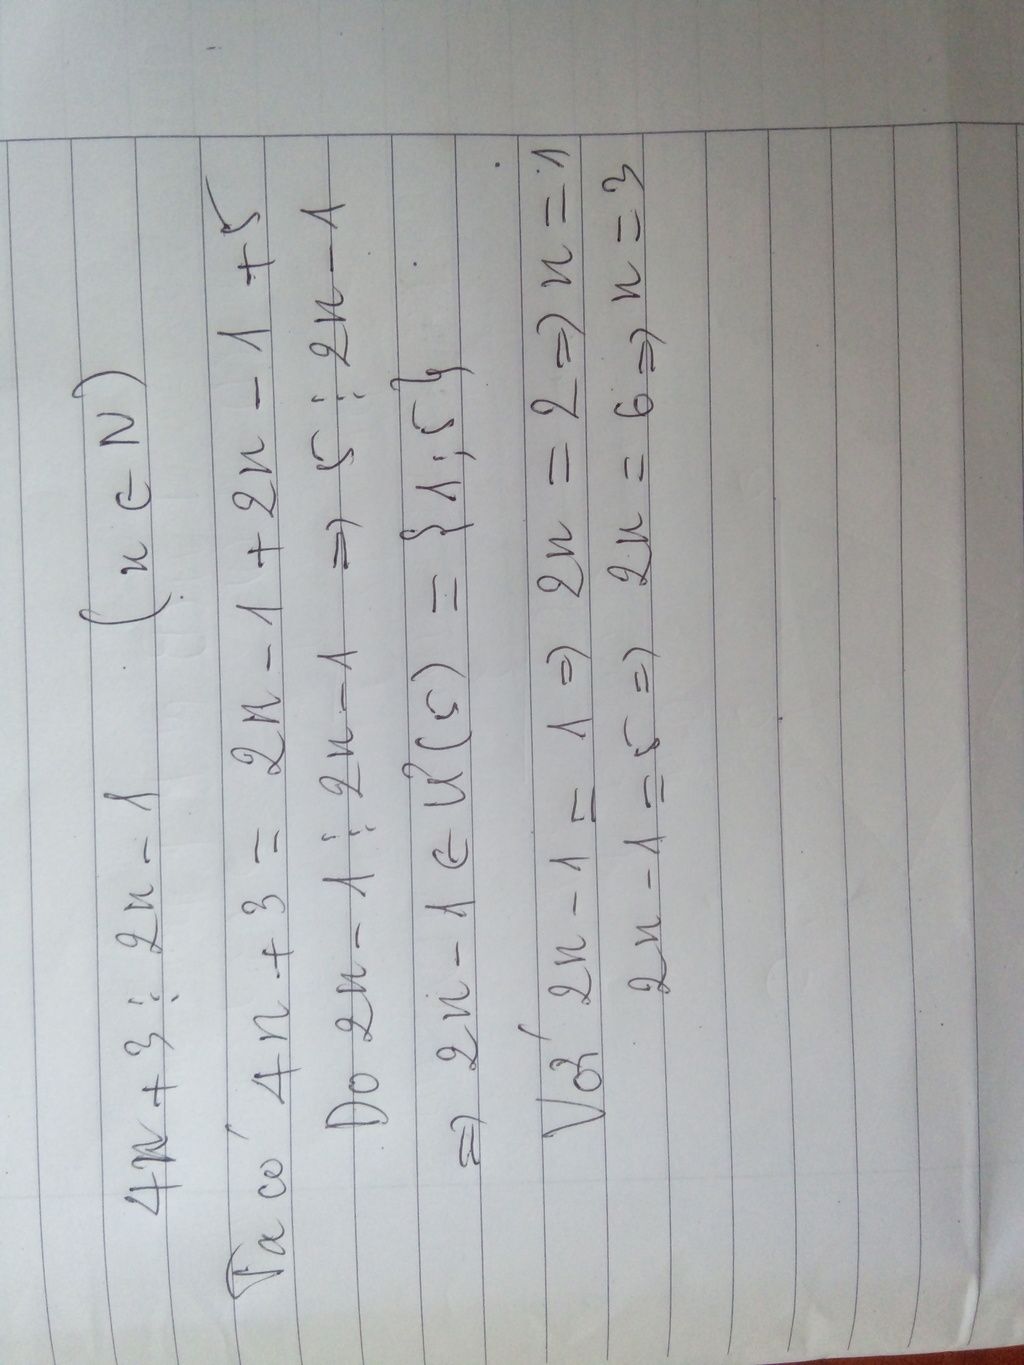 4n + 3 ⋮ 2n - 1 (n ∈ N)
Ta có 4n + 3 = 2n - 1 + 2n - 1 + 5
Do 2n - 1 ⋮ 2n - 1 => 5 ⋮ 2n - 1
=> 2n - 1 ∈ Ư(5) = {1; 5}
Với 2n - 1 = 1 => 2n = 2 => n = 1
2n - 1 = 5 => 2n = 6 => n = 3